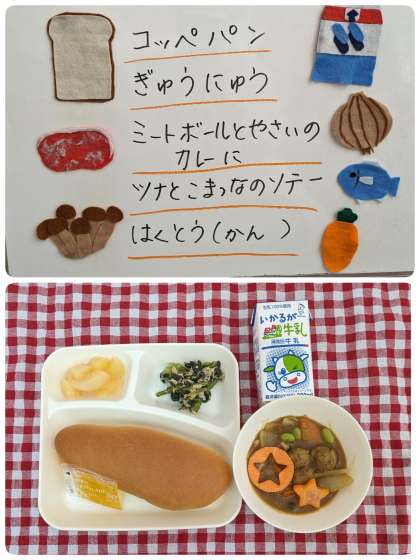 コッペパン
ぎゅうにゅう
ミートボールとやさいの
カレーに
ツナとこまつなのソテー
はくとう(かん )
いかるが
牛乳